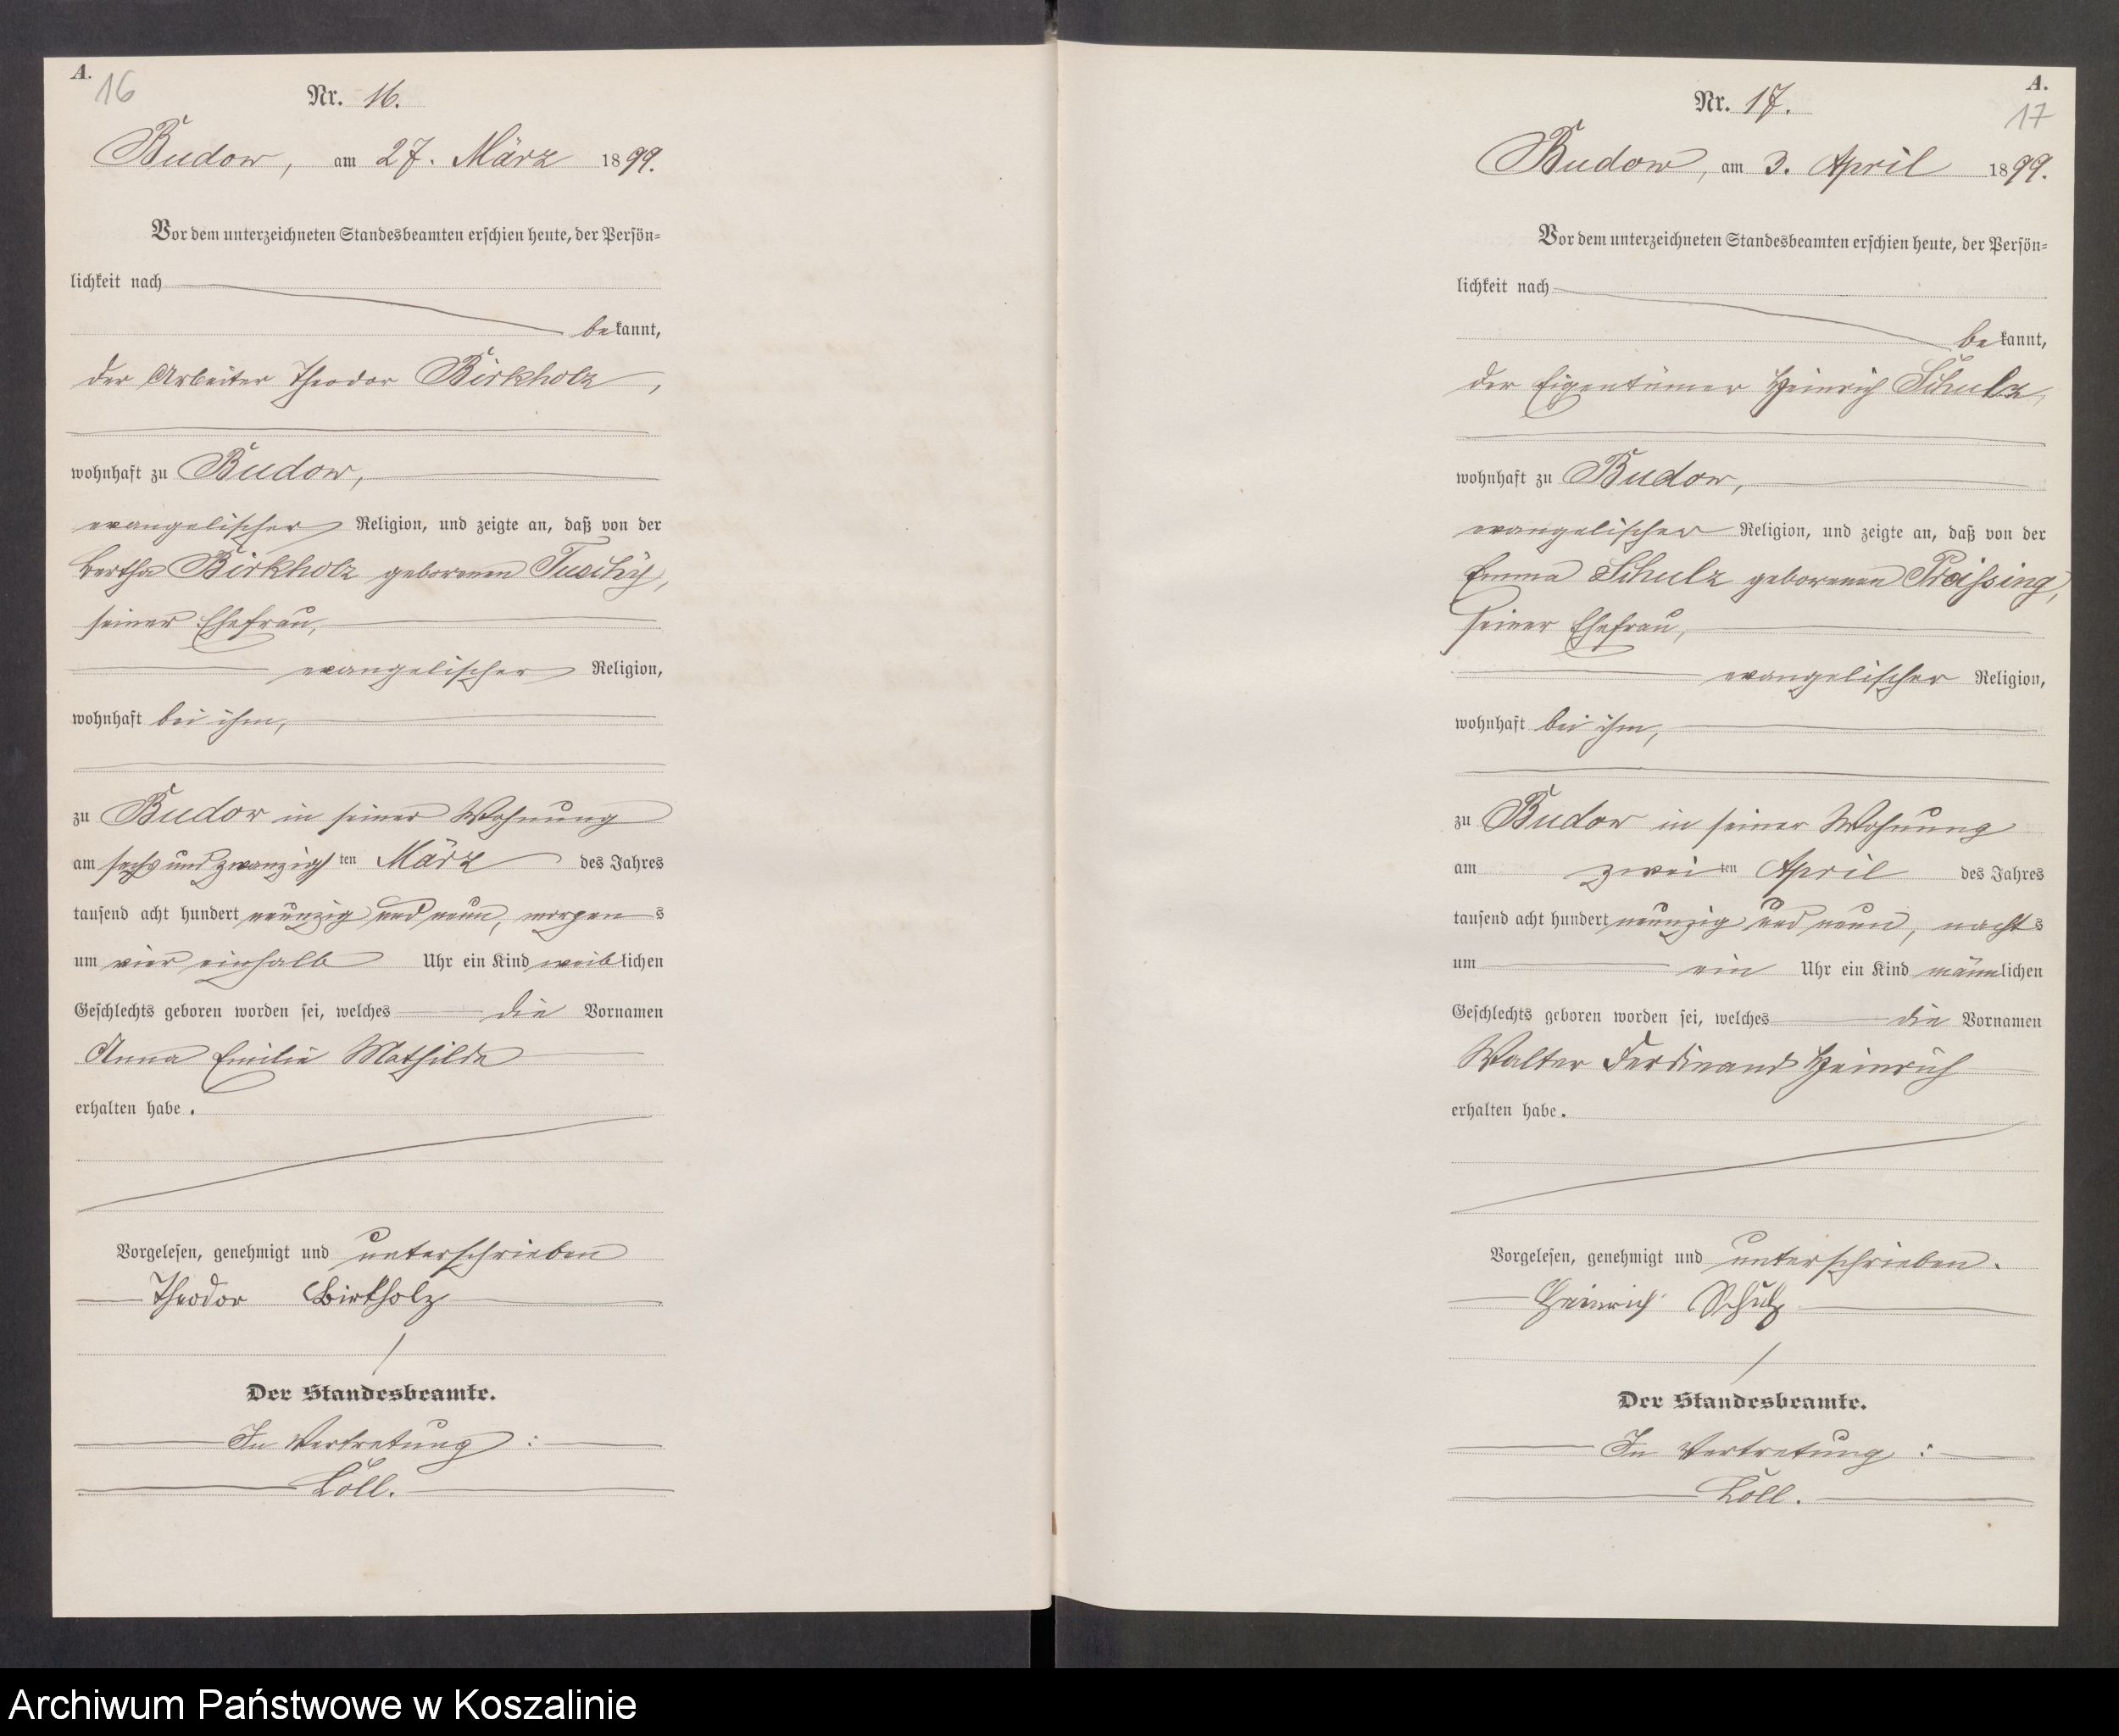 A.
16
Nr. 16.
Budow, am 27. März 1899.
Vor dem unterzeichneten Standesbeamten erschien heute, der Persön-
lichkeit nach
bekannt,
der Arbeiter Theodor Birkholz,
wohnhaft zu Budow,
evangelischer Religion, und zeigte an, daß von der
Bertha Birkholz geborenen
seiner Ehefrau,
evangelischer Religion,
wohnhaft bei ihm,
zu Budow in seiner Wohnung
am sechs und zwanzigsten März des Jahres
tausend acht hundert neunzig und neun, morgens
um vier einhalb Uhr ein Kind weiblichen
Geschlechts geboren worden sei, welches die Vornamen
Anna Emilie Mathilde
erhalten habe.
Vorgelesen, genehmigt und unterschrieben
Theodor Birkholz
Der Standesbeamte.
In Vertretung:
Löll.
A.
17
Nr. 17.
Budow, am 3. April 1899.
Vor dem unterzeichneten Standesbeamten erschien heute, der Persön-
lichkeit nach
bekannt,
der Eigentümer Heinrich Schulz,
wohnhaft zu Budow,
evangelischer Religion, und zeigte an, daß von der
Emma Schulz geborenen
seiner Ehefrau,
evangelischer Religion,
wohnhaft bei ihm,
zu Budow in seiner Wohnung
am zweiten April des Jahres
tausend acht hundert neunzig und neun, nachts
um ein Uhr ein Kind männlichen
Geschlechts geboren worden sei, welches die Vornamen
Walter Ferdinand Heinrich
erhalten habe.
Vorgelesen, genehmigt und unterschrieben.
Heinrich Schulz
Der Standesbeamte.
In Vertretung:
Löll.
Archiwum Państwowe w Koszalinie